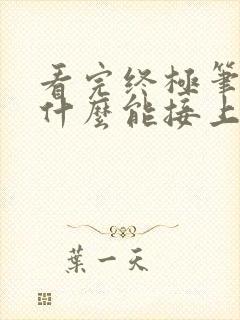 看完终極筆
什麼能接上
葉一天